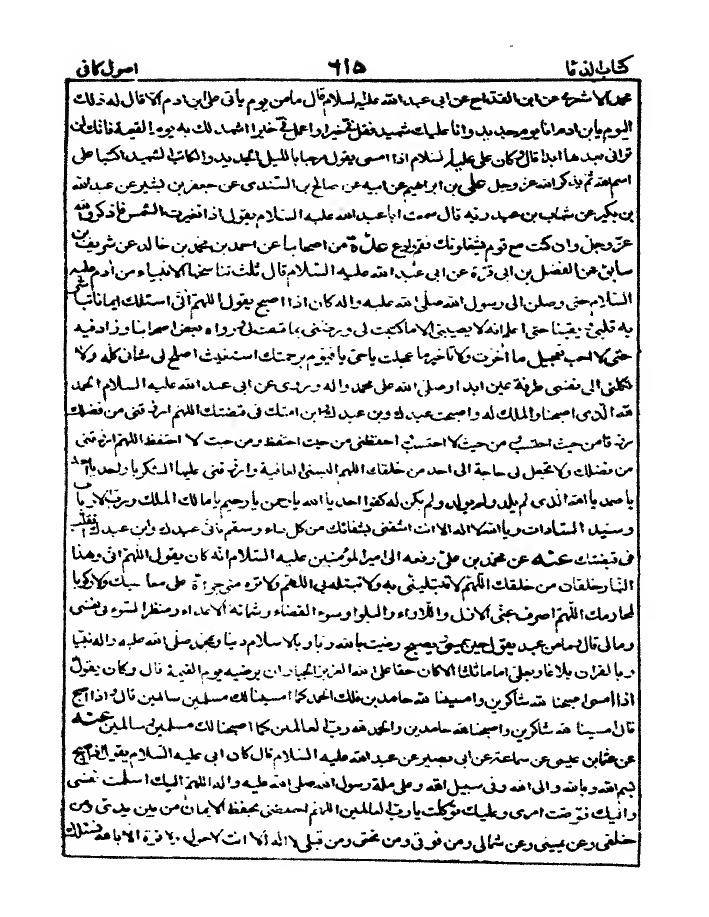 كتاب الدعا ٦١٥ اصول كافى
محمد الاشعرى عن ابن القداح عن ابى عبد الله عليه السلام قال ما من يوم ياتى على ابن ادم الا قال له ذلك
اليوم يا بن ادم انا يوم جديد وانا عليك شهيد فقل فى خيرا واعمل فى خيرا اشهد لك به يوم القيمة فانك لن
ترانى بعدها ابدا قال وكان على عليه السلام اذا امسى يقول مرحبا بالليل الجديد والكاتب الشهيد اكتبا على
اسم الله ثم يذكر الله عز وجل على بن ابراهيم عن ابيه عن صالح بن السندى عن جعفر بن بشير عن عبد الله
بن بكير عن شهاب بن عبد ربه قال سمعت ابا عبد الله عليه السلام يقول اذا تغيرت الشمس فاذكر الله
عز وجل وان كنت مع قوم يشغلونك فقم وادع عدة من اصحابنا عن احمد بن محمد بن خالد عن شريف بن
سابق عن الفضل بن ابى قرة عن ابى عبد الله عليه السلام قال ثلث تناسخها الانبياء من ادم عليه
السلام حتى وصلن الى رسول الله صلى الله عليه واله كان اذا اصبح يقول اللهم انى اسئلك ايمانا تباشر
به قلبى ويقينا حتى اعلم انه لا يصيبنى الا ما كتبت لى ورضنى بما قسمت لى ورواه بعض اصحابنا وزاد فيه
حتى لا احب تعجيل ما اخرت ولا تاخير ما عجلت يا حى يا قيوم برحمتك استغيث اصلح لى شانى كله ولا
تكلنى الى نفسى طرفة عين ابدا وصلى الله على محمد واله وروى عن ابى عبد الله عليه السلام الحمد
لله الذى اصبحنا والملك له واصبحت عبدك وبن عبدك وابن امتك فى قبضتك اللهم ارزقنى من فضلك
رزقا من حيث احتسب ومن حيث لا احتسب واحفظنى من حيث احتفظ ومن حيث لا احتفظ اللهم ارزقنى
من فضلك ولا تجعل لى حاجة الى احد من خلقك اللهم البسنى العافية وارزقنى عليها الشكر يا واحد يا احد
يا صمد يا الله الذى لم يلد ولم يولد ولم يكن له كفوا احد يا الله يا رحمن يا رحيم يا مالك الملك ورب الارباب
وسيد السادات ويا الله لا اله الا انت اشفنى بشفائك من كل داء وسقم فانى عبدك وابن عبدك اتقلب
فى قبضتك عنه عن محمد بن على رفعه الى امير المؤمنين عليه السلام انه كان يقول اللهم انى وهذا
النهار خلقان من خلقك اللهم لا تبتلينى به ولا تبتله بى اللهم ولا تره منى جرأة على معاصيك ولا ركوبا
لمحارمك اللهم اصرف عنى الازل واللاواء والبلوا وسوء القضاء وشماتة الاعداء ومنظر السوء فى نفسى
ومالى قال وما من عبد يقول حين يمسى ويصبح رضيت بالله ربا وبالاسلام دينا وبمحمد صلى الله عليه واله نبيا
وبالقران بلاغا وبعلى اماما ثلثا الا كان حقا على الله العزيز الجبار ان يرضيه يوم القيمة قال وكان يقول
اذا امسى اصبحنا لله شاكرين وامسينا لله حامدين فلك الحمد كما امسينا لك مسلمين سالمين قال واذا اصبح
قال امسينا لله شاكرين واصبحنا لله حامدين والحمد لله رب العالمين كما اصبحنا لك مسلمين سالمين عنه
عن عثمان بن عيسى عن سماعة عن ابى بصير عن عبد الله عليه السلام قال كان ابى عليه السلام يقول اذا اصبح
بسم الله وبالله والى الله وفى سبيل الله وعلى ملة رسول الله صلى الله عليه واله اللهم اليك اسلمت نفسى
واليك فوضت امرى وعليك توكلت يا رب العالمين اللهم احفظنى بحفظ الايمان من بين يدى ومن
خلفى وعن يمينى وعن شمالى ومن فوقى ومن تحتى ومن قبلى لا اله الا انت لا حول ولا قوة الا بالله نسئلك